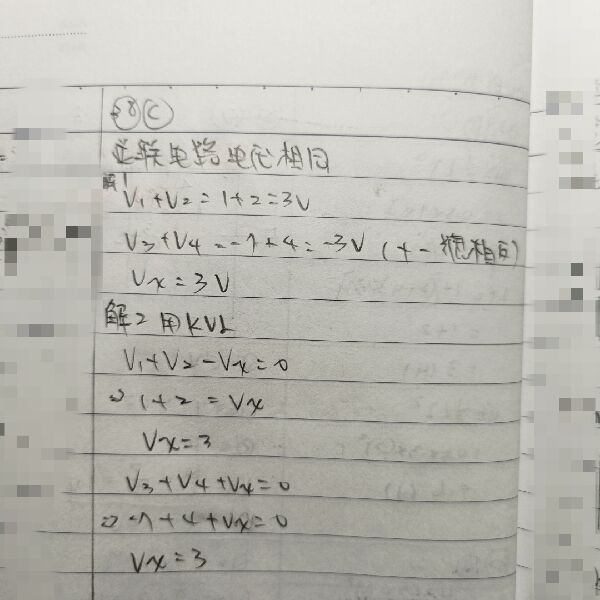 28 C
並联电路电压相同
解1
V₁+V₂=1+2=3V
V₃+V₄=-7+4=-3V (+-相同)
Vx=3V
解2用KVL
V₁+V₂-Vx=0
⇒ 1+2=Vx
Vx=3
V₃+V₄+Vx=0
⇒ -7+4+Vx=0
Vx=3